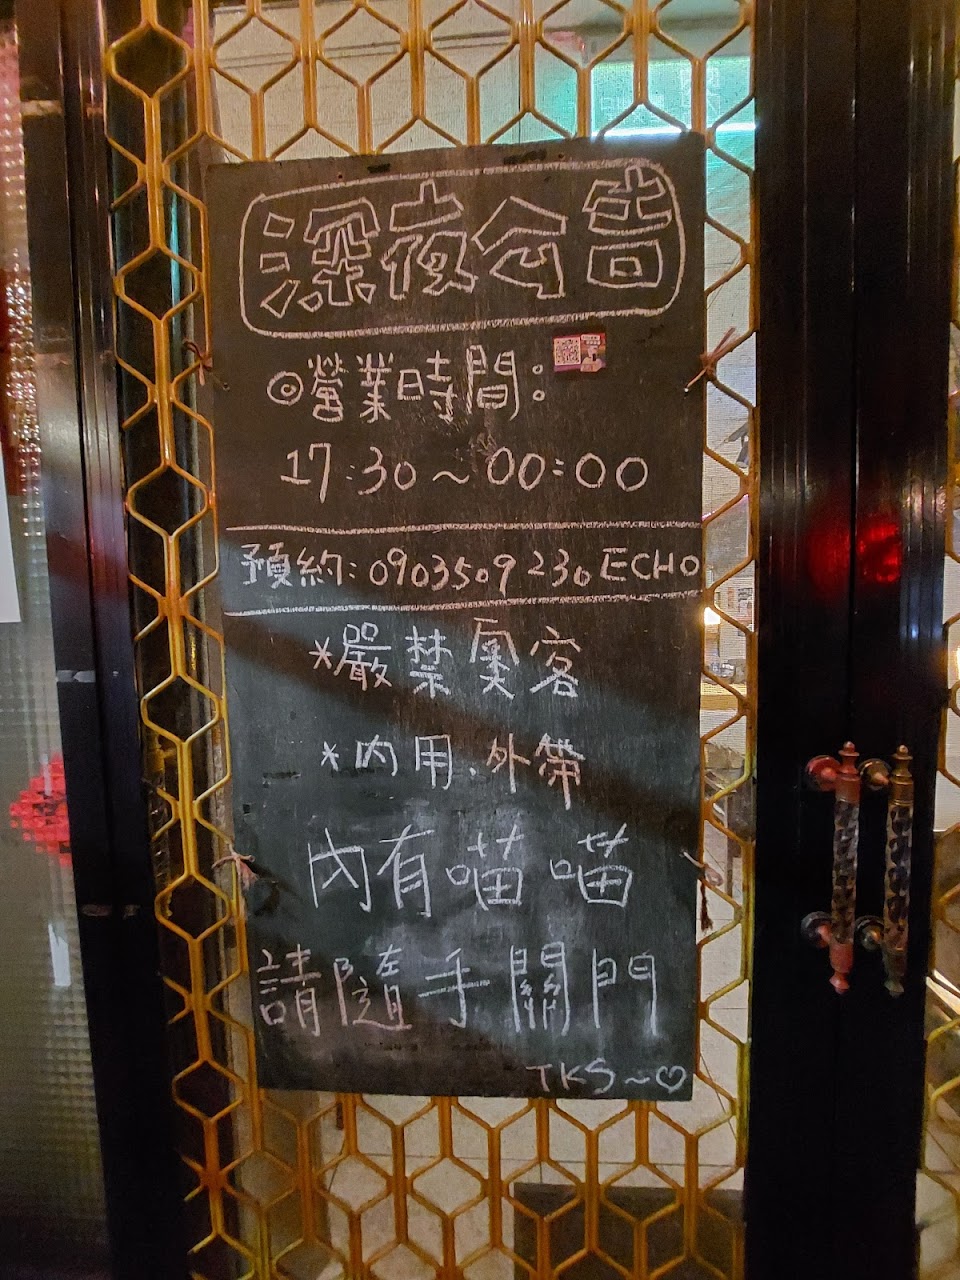 深夜公告
◎營業時間:
17:30~00:00
預約:0903509230 ECHO
*嚴禁奧客
*內用、外帶
內有喵喵
請隨手關門
TKS~♡